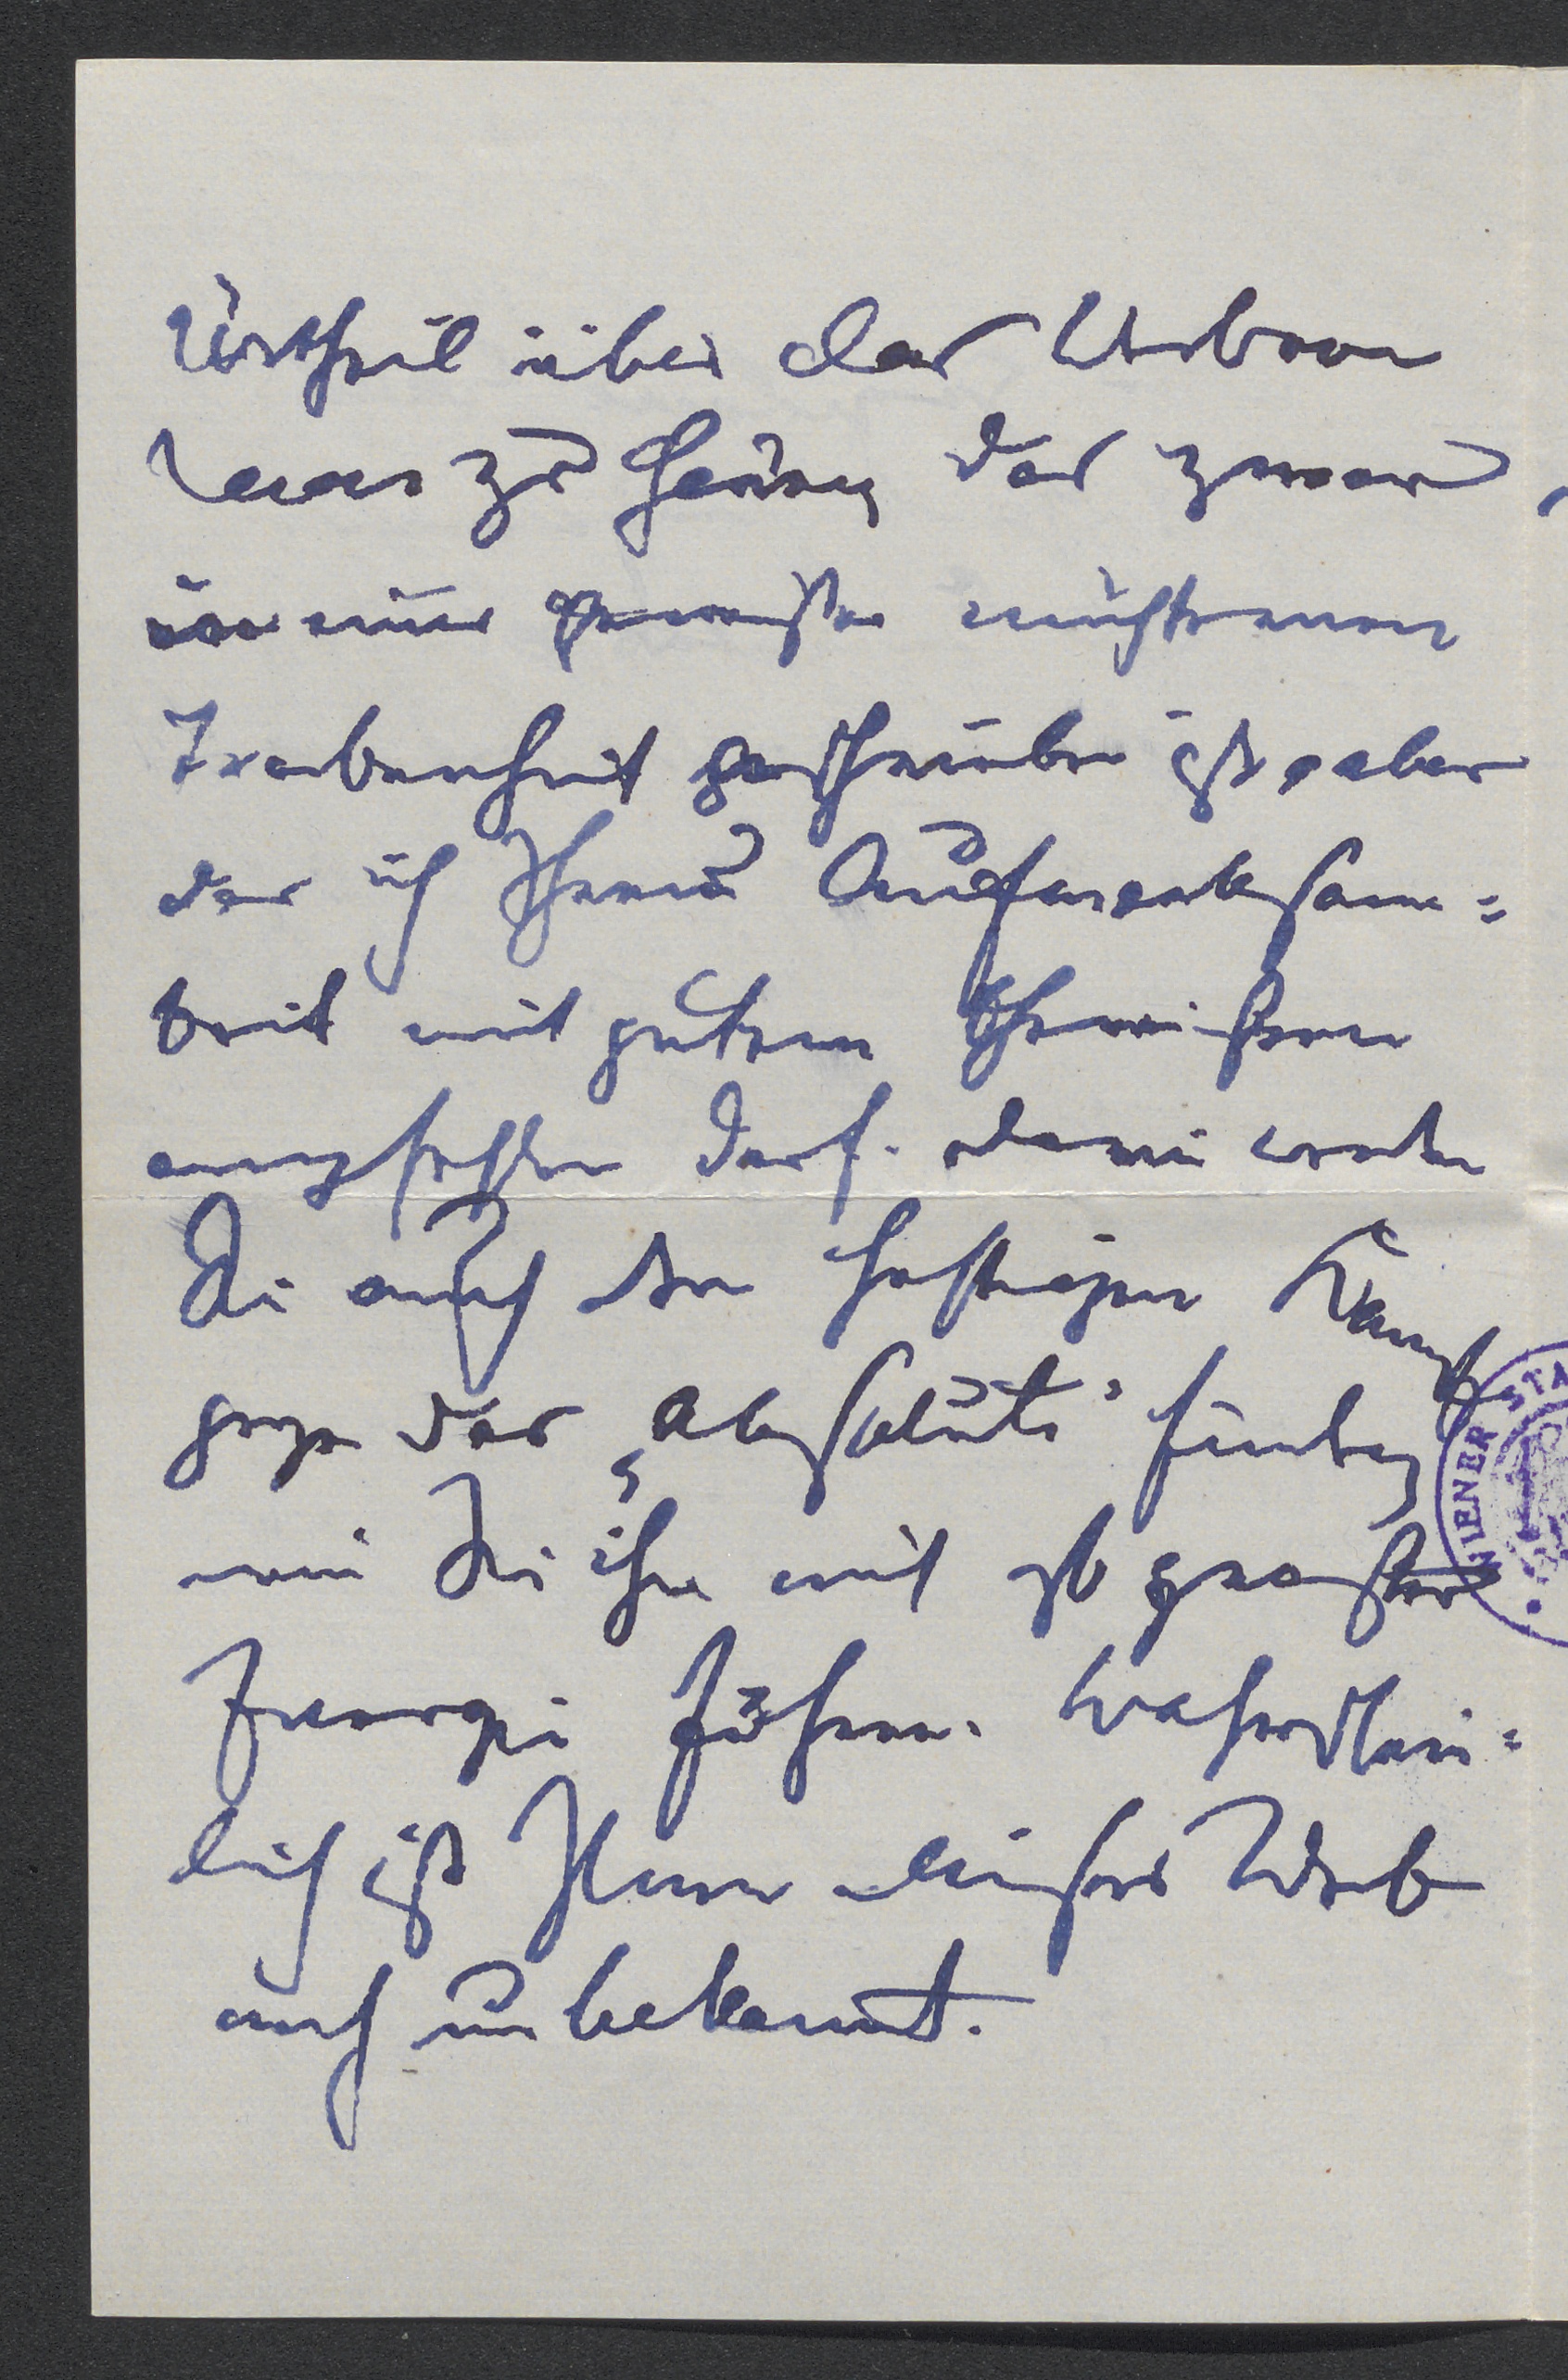 Urtheil über das Unbann
zu hören das zwar,
in einer gewissen nüchternen
Trockenheit geschrieben ist, aber
das ich Ihrer Aufmerksam=
keit mit gutem Gewissen
empfehlen darf. darin werden
Sie auch den heftigen Kampf
gegen das „Absolute" finden
wie Sie ihn mit so großer
Energie führen. Wahrschein=
lich ist Ihnen dieses Werk
auch unbekannt.
WIENER STA